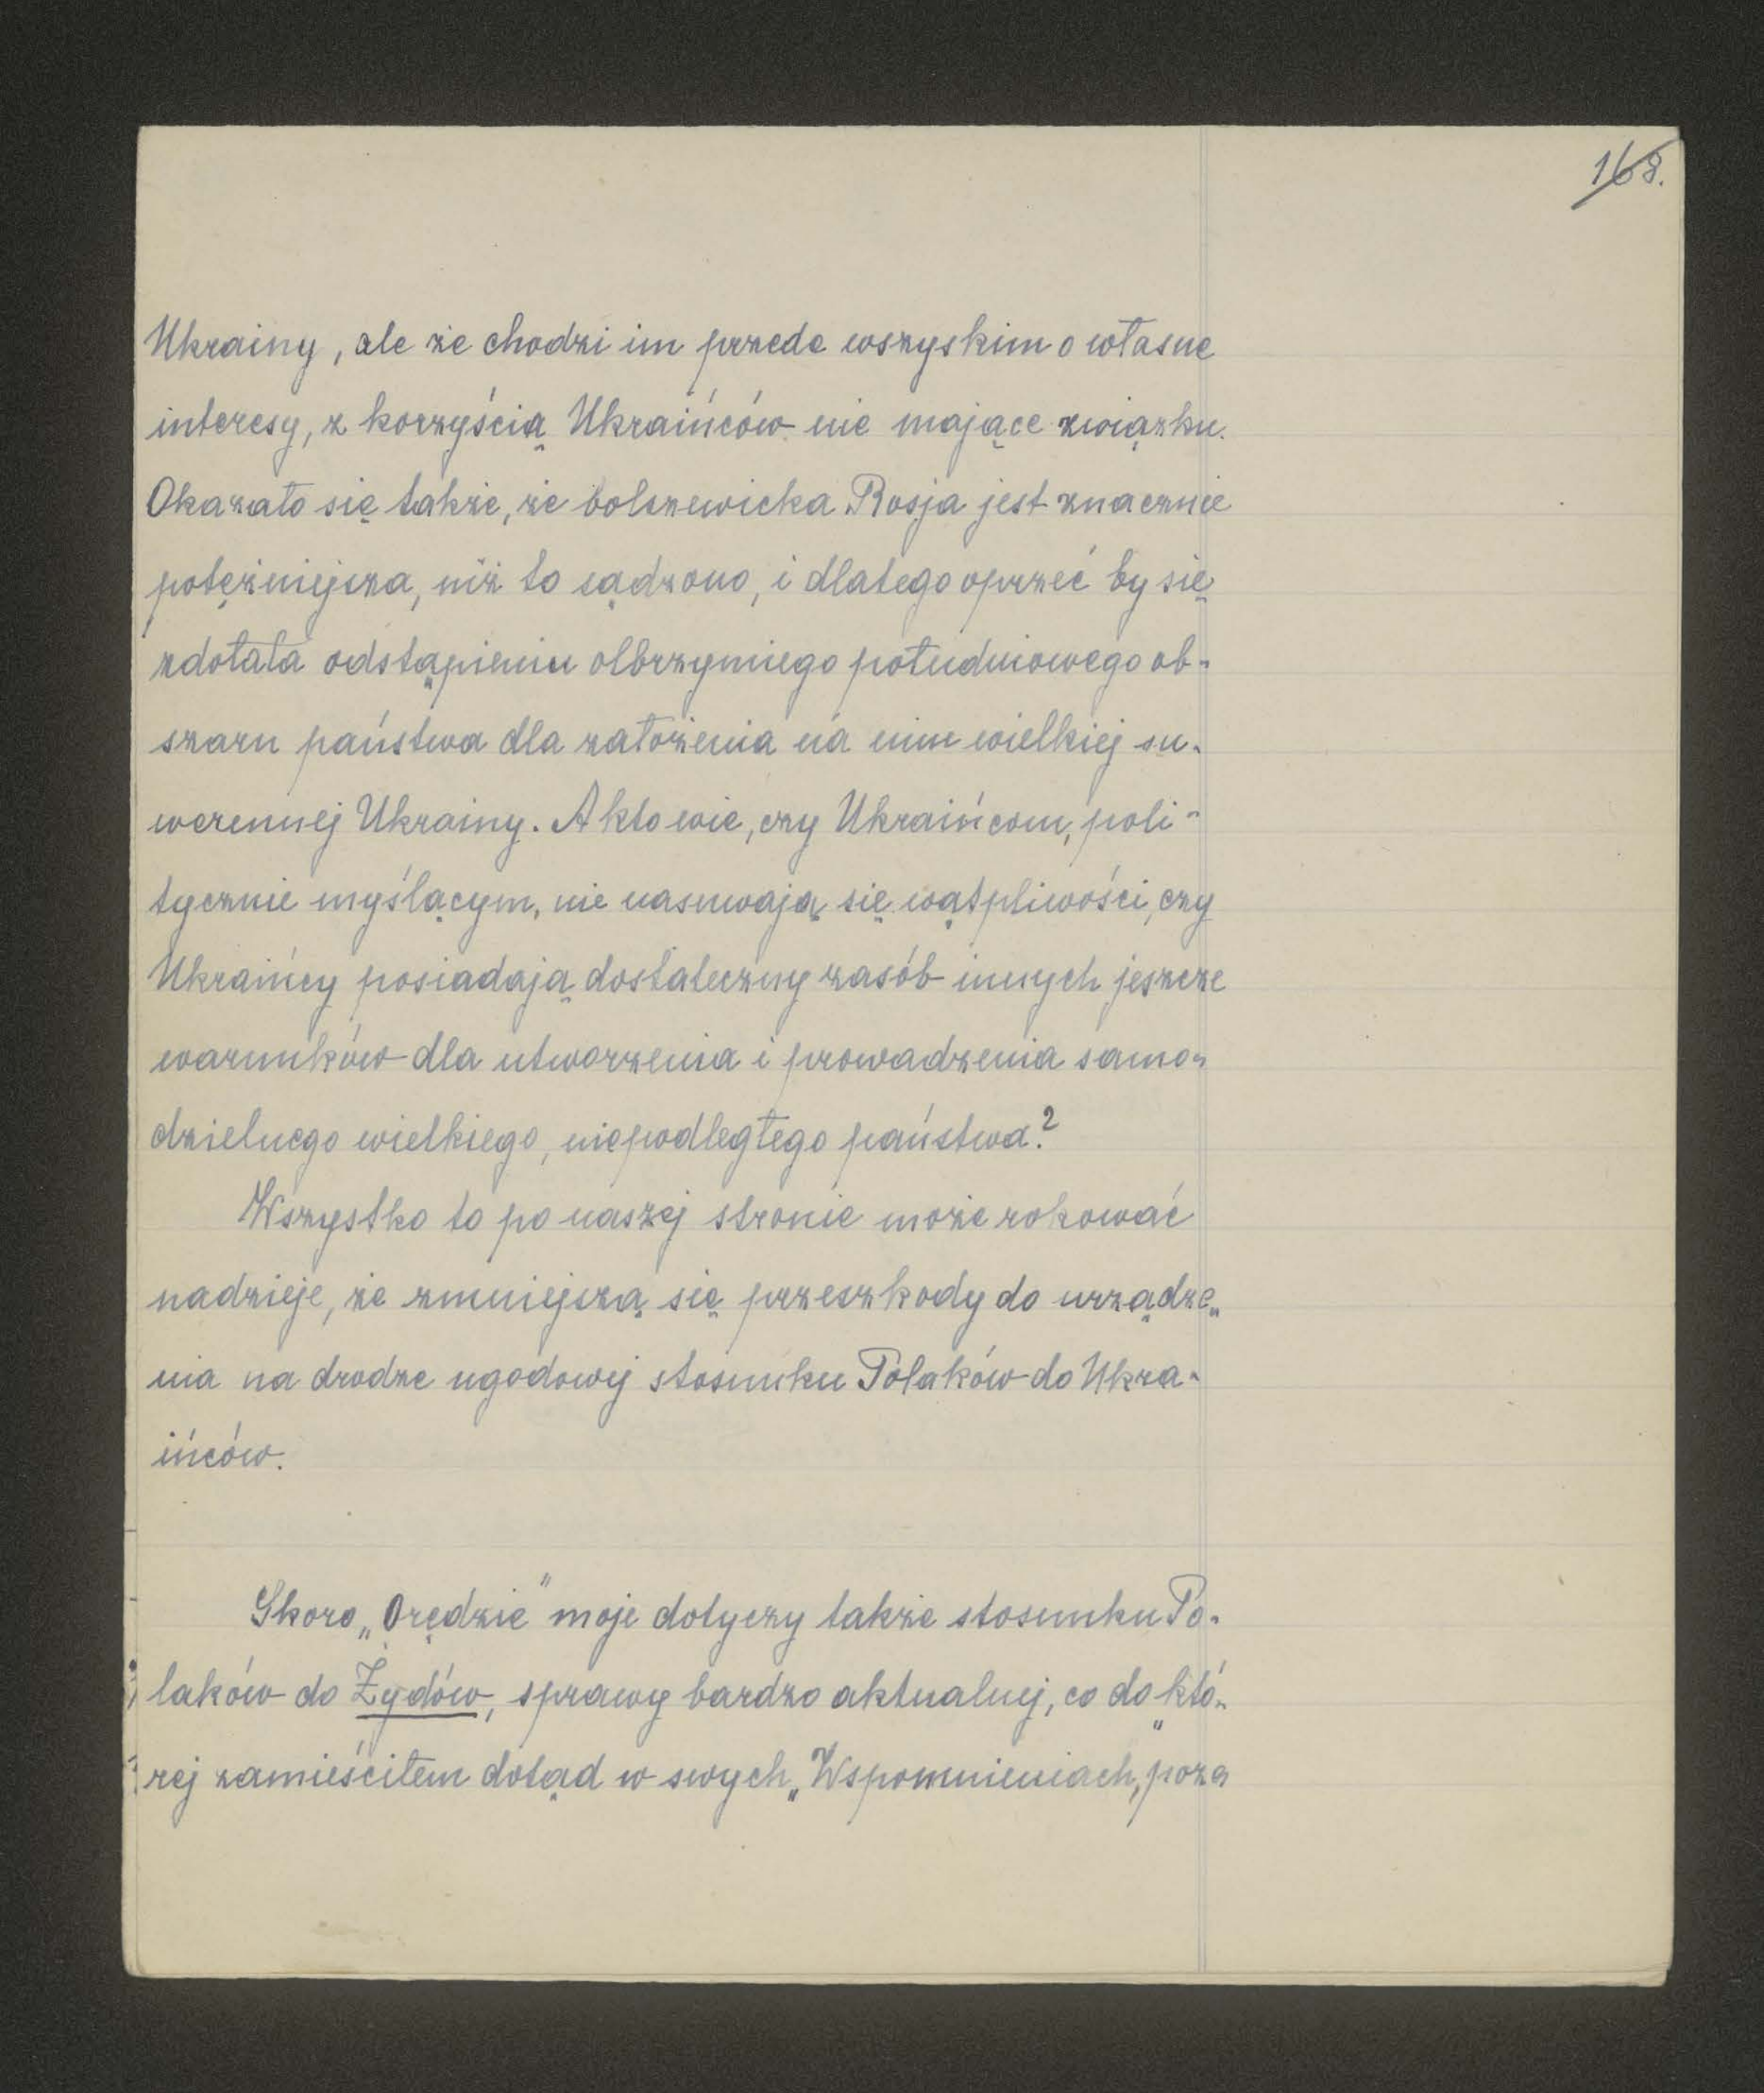 168.
Ukrainy, ale że chodzi im przede wszyskim o własne
interesy, z korzyścią Ukraińców nie mające związku.
Okazało się także, że bolszewicka Rosja jest znacznie
potężniejsza, niż to sądzono, i dlatego oprzeć by się
zdołała odstąpieniu olbrzymiego południowego ob-
szaru państwa dla założenia na nim wielkiej su-
werennej Ukrainy. A kto wie, czy Ukraińcom, poli-
tycznie myślącym, nie nasuwają się wątpliwości, czy
Ukraińcy posiadają dostateczny zasób innych jeszcze
warunków dla utworzenia i prowadzenia samo-
dzielnego wielkiego, niepodległego państwa?
Wszystko to po naszej stronie może rokować
nadzieje, że zmniejszą się przeszkody do urządze-
nia na drodze ugodowej stosunku Polaków do Ukra-
ińców.
Skoro „Orędzie" moje dotyczy także stosunku Po-
laków do Żydów, sprawy bardzo aktualnej, co do któ-
rej zamieściłem dotąd w swych „Wspomnieniach," poza